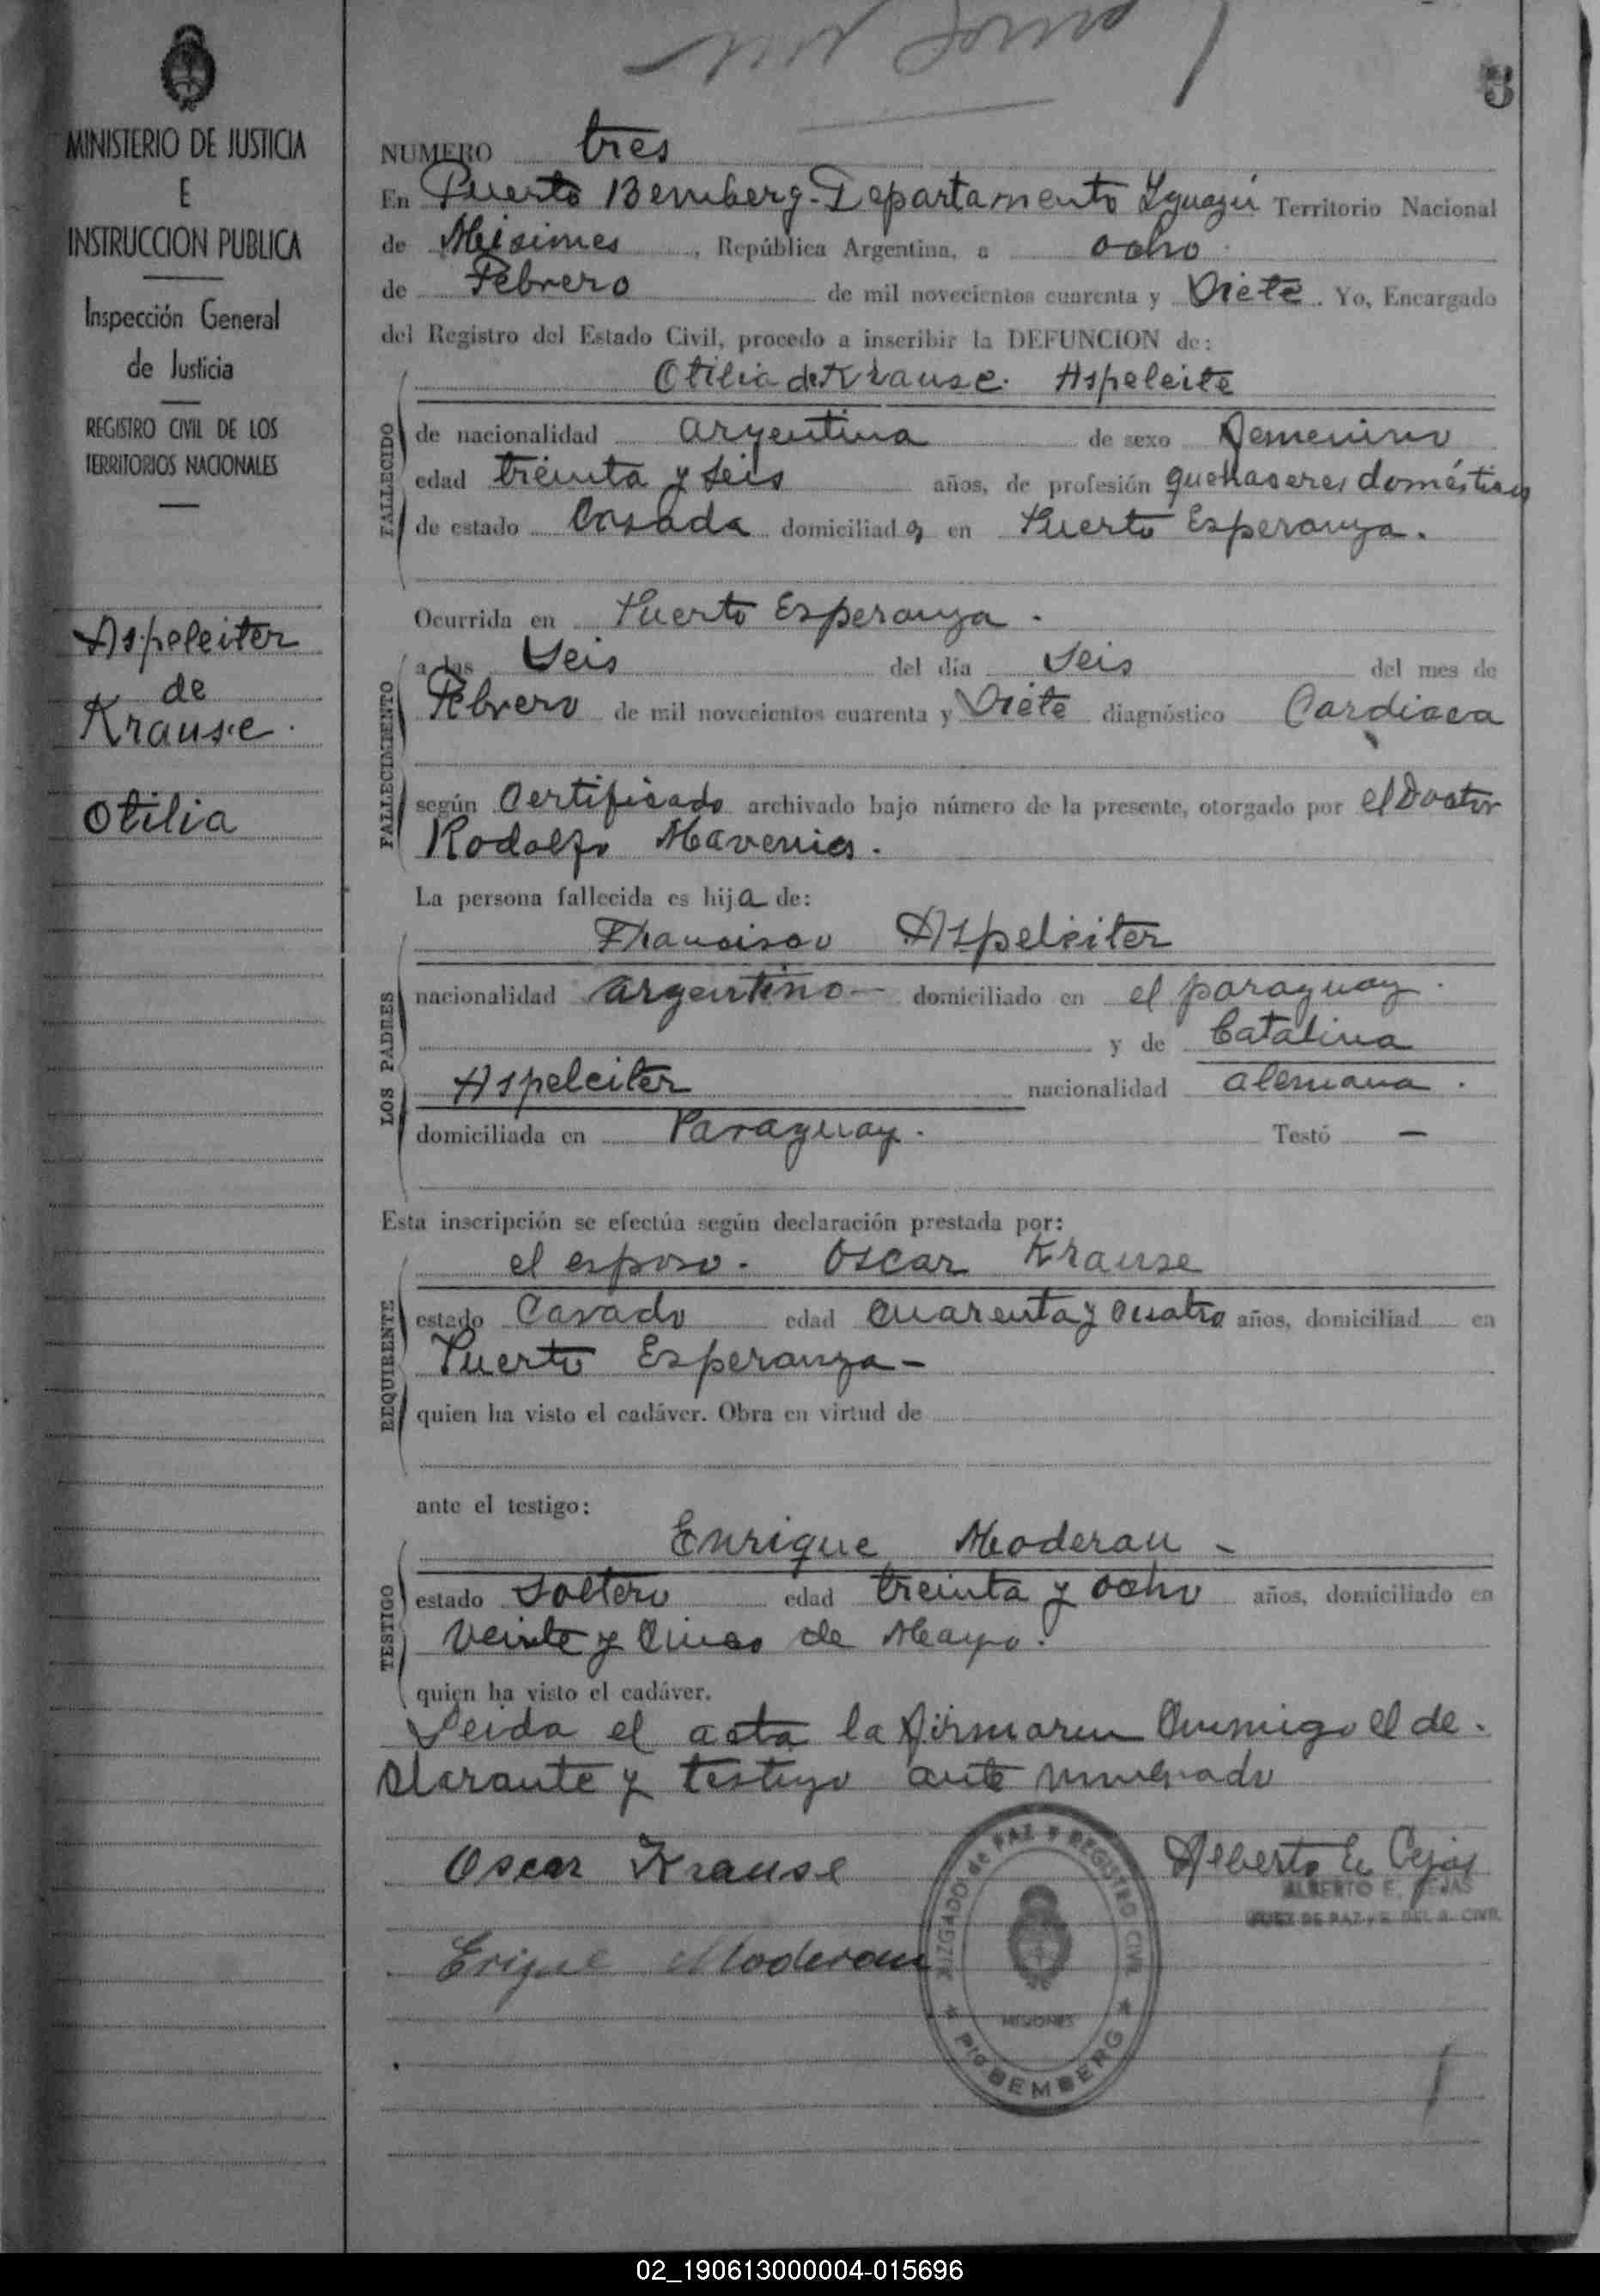 3
MINISTERIO DE JUSTICIA
E
INSTRUCCION PUBLICA
Inspección General
de Justicia
REGISTRO CIVIL DE LOS
TERRITORIOS NACIONALES
Aspeleiter
de
Krause.
Otilia
NUMERO tres
En Puerto Bemberg-Departamento Yguazú Territorio Nacional
de Misiones, República Argentina, a ocho
de Febrero de mil novecientos cuarenta y Siete. Yo, Encargado
del Registro del Estado Civil, procedo a inscribir la DEFUNCION de:
Otilia de Krause. Aspeleite
FALLECIDO
de nacionalidad argentina de sexo femenino
edad treinta y seis años, de profesión quehaceres domésticos
de estado Casada domiciliada en Puerto Esperanza.
Ocurrida en Puerto Esperanza.
FALLECIMIENTO
a las Seis del día Seis del mes de
Febrero de mil novecientos cuarenta y Siete diagnóstico Cardiaca
según Certificado archivado bajo número de la presente, otorgado por el Doctor
Rodolfo
La persona fallecida es hija de:
LOS PADRES
Francisco Aspeleiter
nacionalidad argentino- domiciliado en el paraguay.
y de Catalina
Aspeleiter nacionalidad alemana.
domiciliada en Paraguay. Testó —
Esta inscripción se efectúa según declaración prestada por:
REQUIRENTE
el esposo. Oscar Krause
estado Casado edad cuarenta y cuatro años, domiciliad en
Puerto Esperanza-
quien ha visto el cadáver. Obra en virtud de
ante el testigo:
TESTIGO
Enrique Moderau -
estado Soltero edad treinta y ocho años, domiciliado en
veinte y cinco de Mayo.
quien ha visto el cadáver.
Leida el acta la firmaron conmigo el de-
clarante y testigo ante
Oscar Krause
Alberto E. Cejas
ALBERTO E. CEJAS
JUEZ DE PAZ Y E. DEL R. CIVIL
Erique Moderau
JUZGADO de PAZ Y REGISTRO CIVIL
MISIONES
PTO BEMBERG
02_190613000004-015696